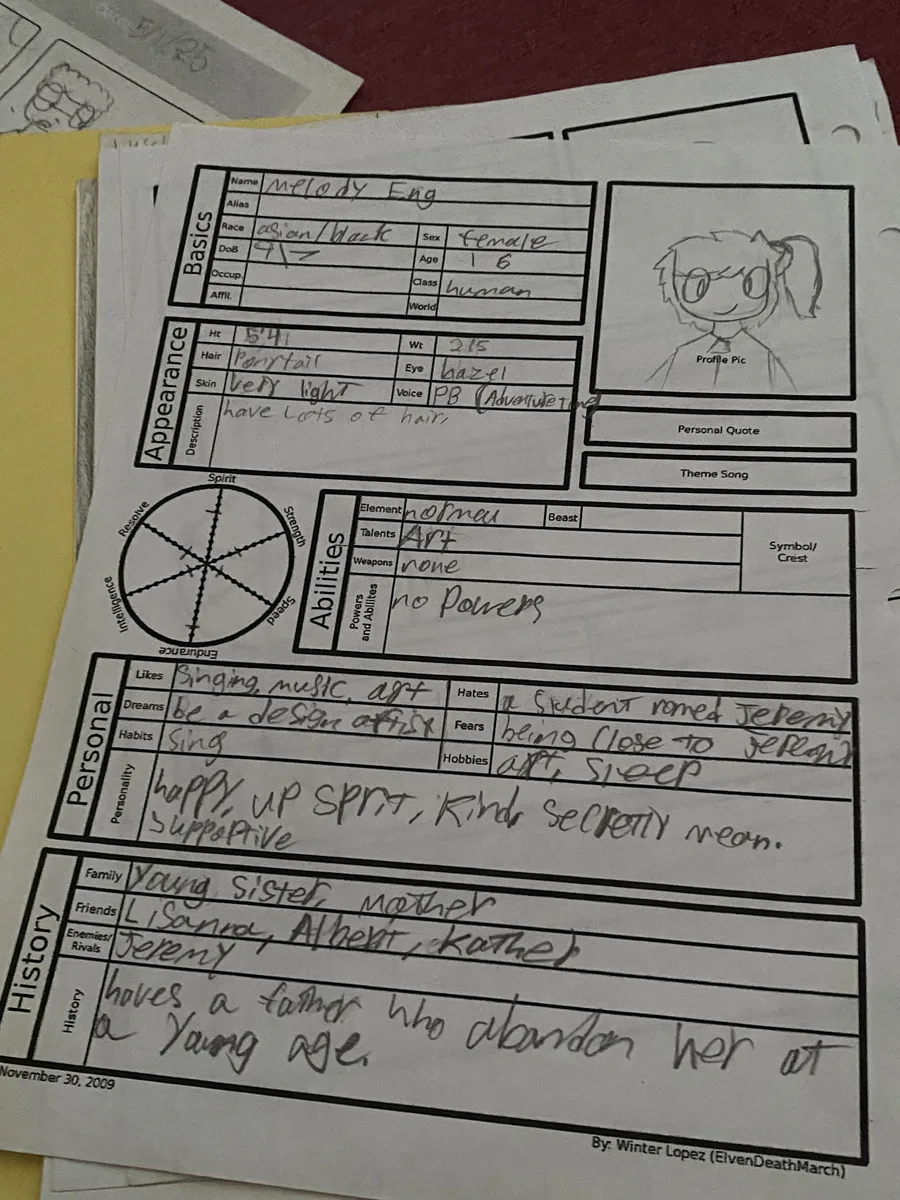 5/1/25
Basics
Name Melody Eng
Alias
Race asian/black Sex female
DoB 9\7 Age 16
Occup. Class human
Affil. World
Profile Pic
Appearance
Ht 5'4 Wt 215
Hair Ponytail Eye hazel
Skin very light Voice PB (Adventure Time
Description have Lots of hair,
Personal Quote
Theme Song
Spirit
Strength
Speed
Endurance
Intelligence
Resolve
Abilities
Element normal Beast
Talents Art
Weapons none
Symbol/
Crest
Powers
and Abilites no Powers
Personal
Likes Singing, music, art Hates a student named Jeremy
Dreams be a design artist Fears being close to Jeremy
Habits Sing Hobbies art, sleep
Personality happy, up sprit, kind, secretly mean.
supportive
History
Family Young sister, mother
Friends Lisanna, Albert, Kather
Enemies/
Rivals Jeremy
History haves a father who abandon her at
a young age.
November 30, 2009
By: Winter Lopez (ElvenDeathMarch)